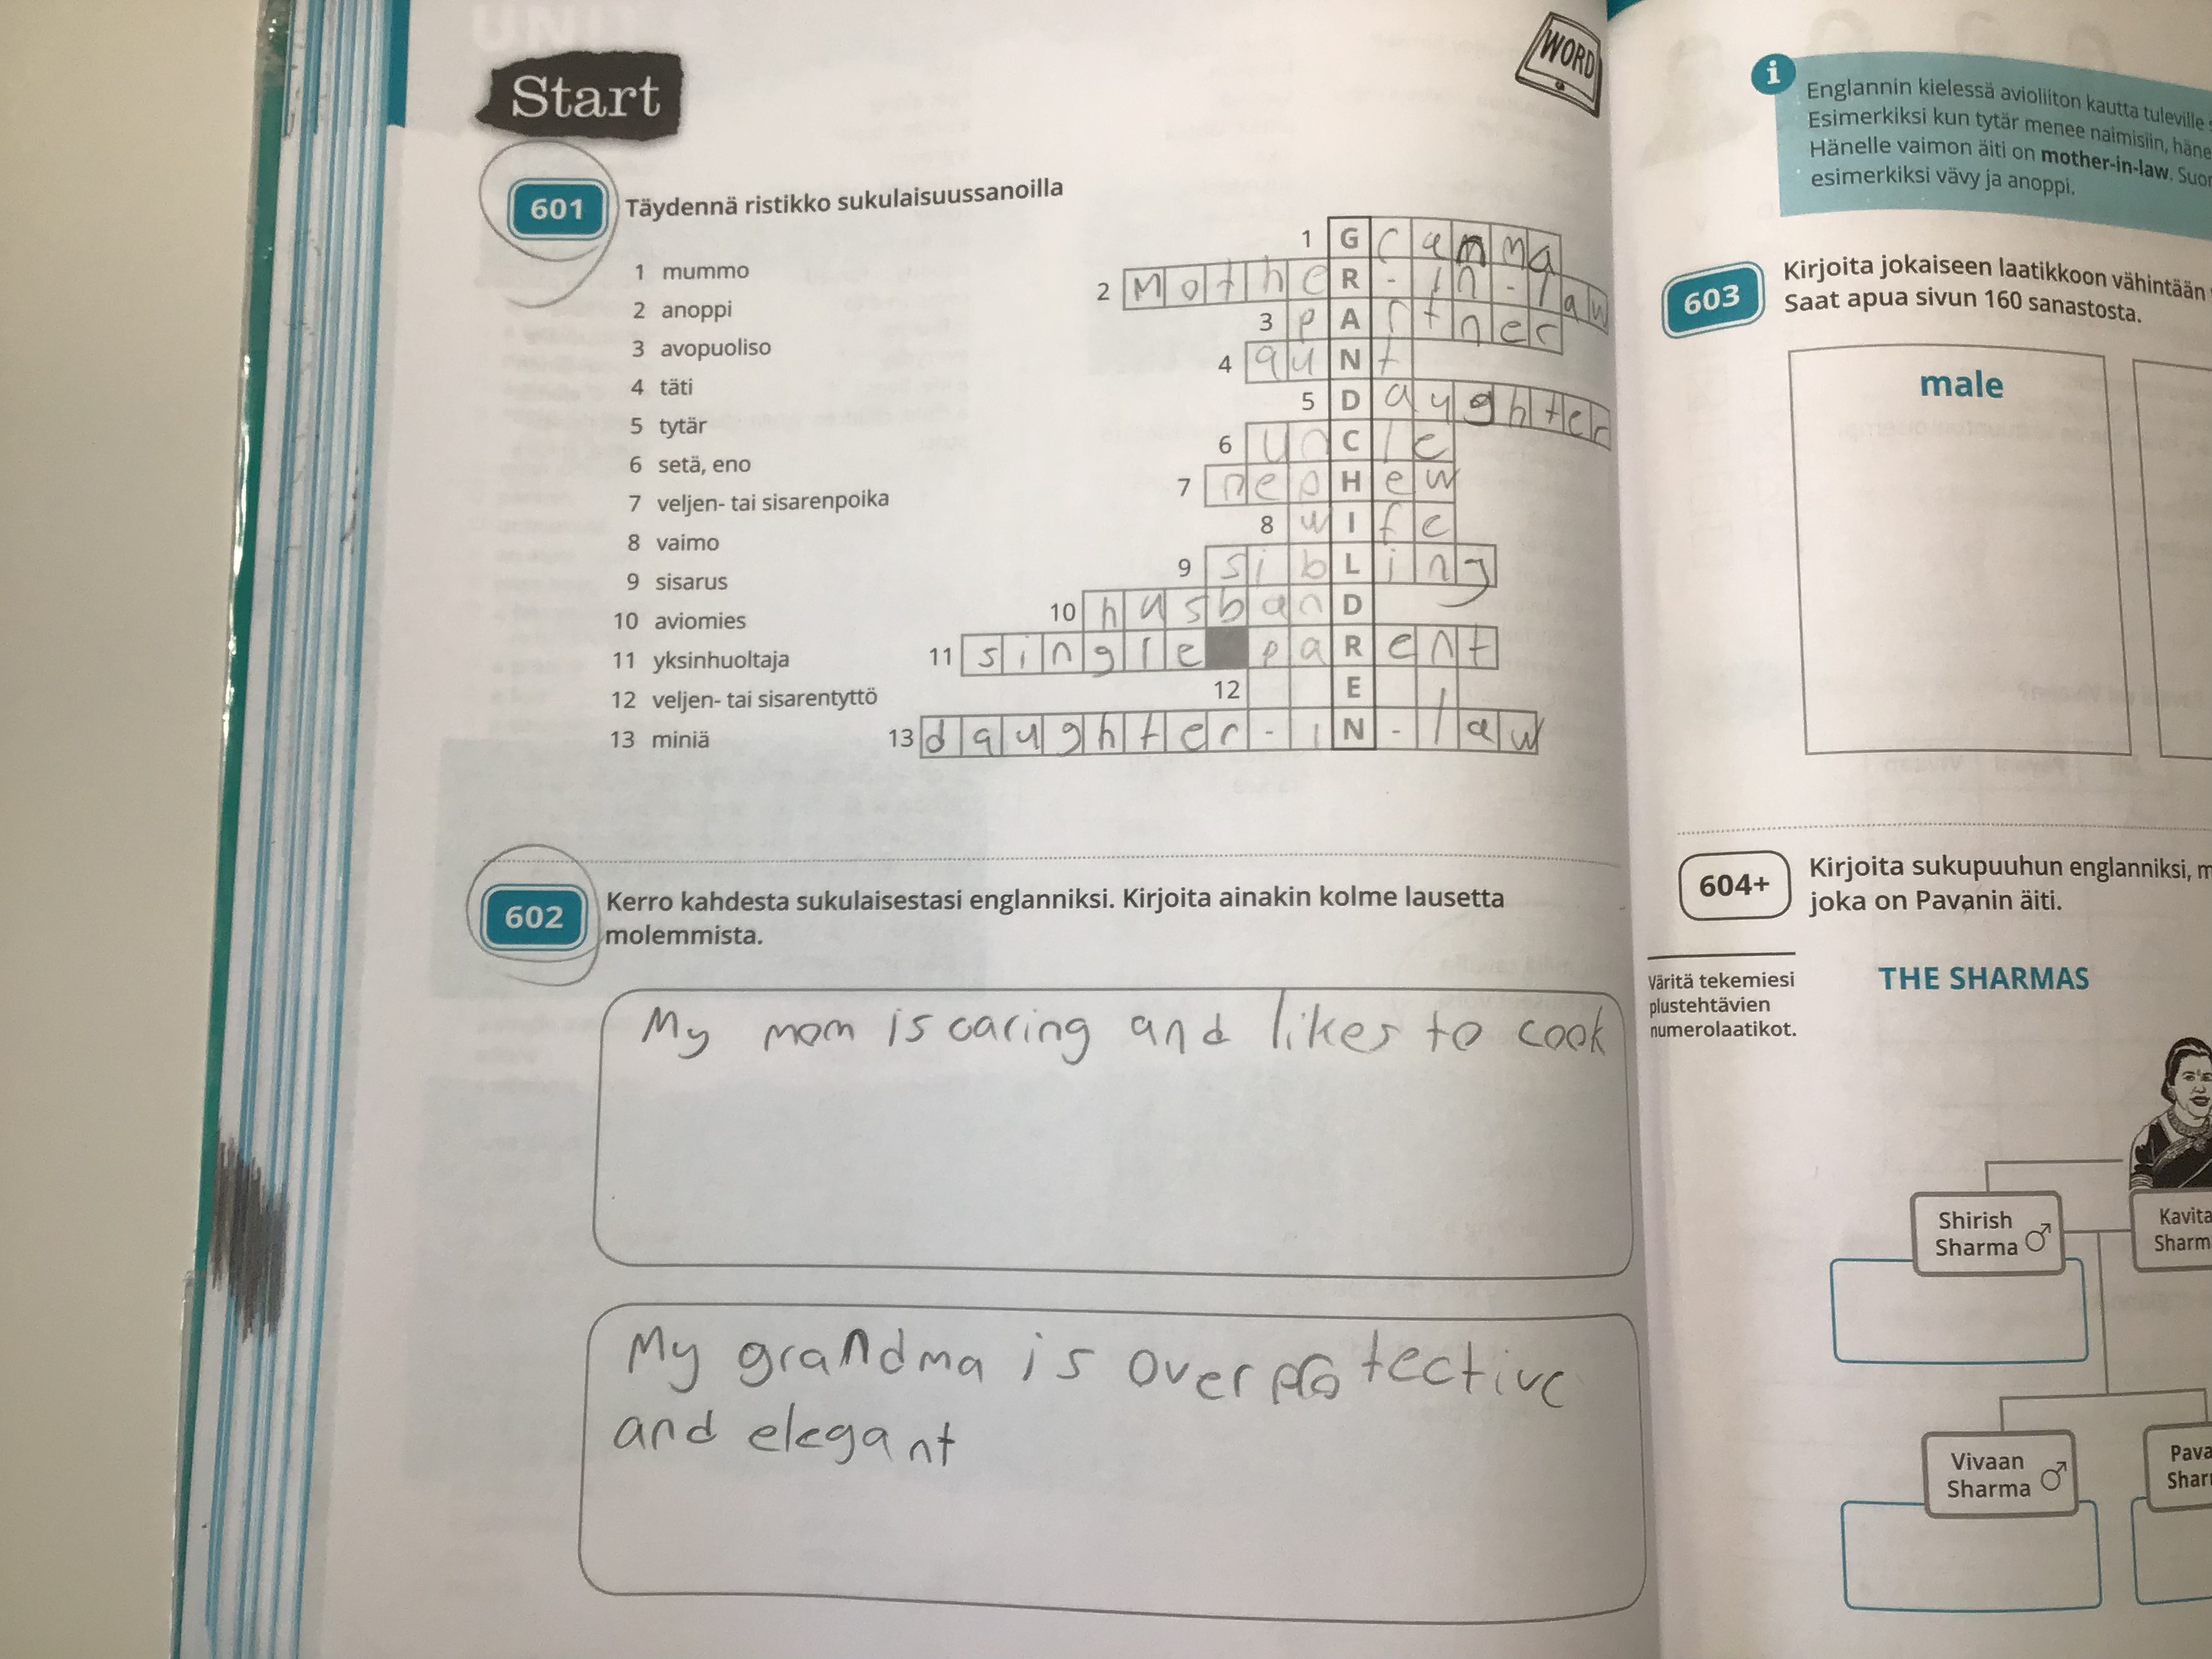 UNI
Start
WORD
601 Täydennä ristikko sukulaisuussanoilla
1 mummo
2 anoppi
3 avopuoliso
4 täti
5 tytär
6 setä, eno
7 veljen- tai sisarenpoika
8 vaimo
9 sisarus
10 aviomies
11 yksinhuoltaja
12 veljen- tai sisarentyttö
13 miniä
1 Granma
2 MotheR-in-law
3 pArtner
4 auNt
5 Daughter
6 unCle
7 nepHew
8 wIfe
9 sibLing
10 husbanD
11 single paRent
12 E
13 daughter-iN-law
602 Kerro kahdesta sukulaisestasi englanniksi. Kirjoita ainakin kolme lausetta
molemmista.
My mom is caring and likes to cook
My grandma is overprotective
and elegant
i
Englannin kielessä avioliiton kautta tuleville
Esimerkiksi kun tytär menee naimisiin, häne
Hänelle vaimon äiti on mother-in-law. Suo
esimerkiksi vävy ja anoppi.
603 Kirjoita jokaiseen laatikkoon vähintään
Saat apua sivun 160 sanastosta.
male
604+ Kirjoita sukupuuhun englanniksi, m
joka on Pavanin äiti.
Väritä tekemiesi
plustehtävien
numerolaatikot.
THE SHARMAS
Shirish
Sharma ♂
Kavita
Sharm
Vivaan
Sharma ♂
Pava
Shar